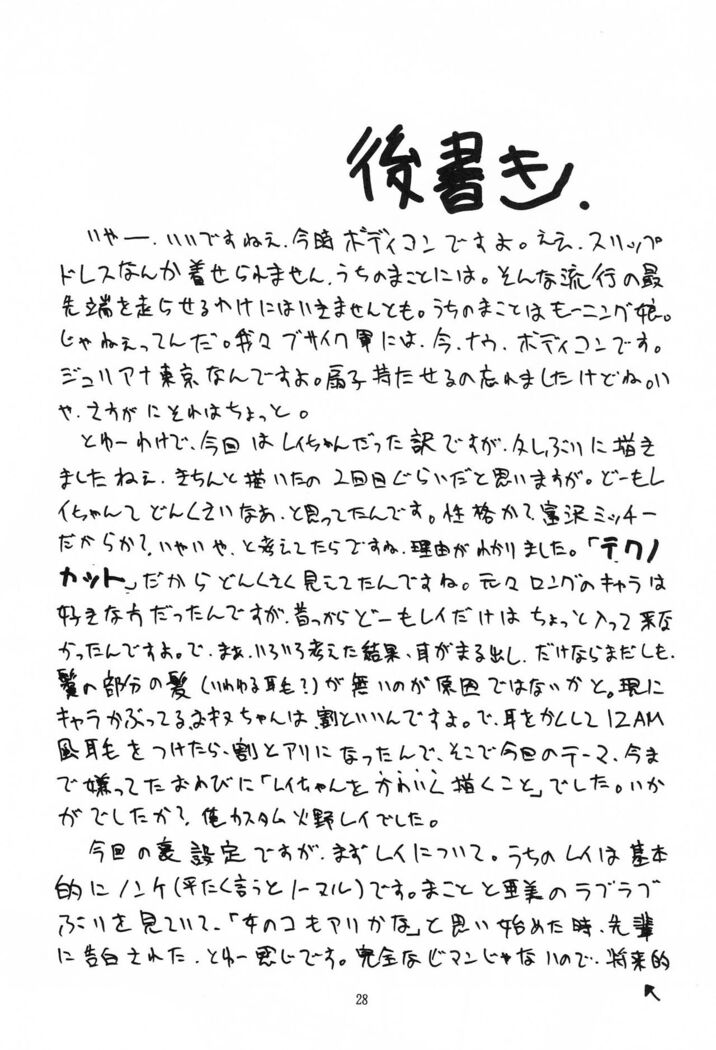 後書き.
いやー、いいですねえ、今時ボディコンですよ。ええ、スリップ
ドレスなんか着せられません、うちのまことには。そんな流行の最
先端を走らせるわけにはいきませんとも。うちのまことはモーニング娘。
じゃねぇってんだ。我々ブサイク軍には、今、ナウ、ボディコンです。
ジュリアナ東京なんですよ。扇子持たせるの忘れましたけどね。い
や、さすがにそれはちょっと。
とゆーわけで、今回はレイちゃんだった訳ですが、久しぶりに描き
ましたねえ、きちんと描いたの2回目ぐらいだと思いますが。どーもレ
イちゃんてどんくさいなあ、と思ってたんです。性格か?富沢ミッチー
だからか?いやいや、と考えてたらですね、理由がわかりました。「テクノ
カット」だからどんくさく見えてたんですね。元々ロングのキャラは
好きな方だったんですが、昔っからどーもレイだけはちょっと入って来な
かったんですよ。で、まぁ、いろいろ考えた結果、耳がまる出し、だけならまだしも、
鬢の部分の髪(いわゆる毛?)が無いのが原因ではないかと。現に
キャラかぶってるおキヌちゃんは、割といいんですよ。で、耳をかくして12AM
風毛をつけたら、割とアリになったんで、そこで今回のテーマ、今ま
で嫌ってたおわびに「レイちゃんをかわいく描くこと」でした。いか
がでしたか?俺カスタム火野レイでした。
今回の裏設定ですが、まずレイについて。うちのレイは基本
的にノンケ(平たく言うとノーマル)です。まことと亜美のラブラブ
ぶりを見ていて、「女のコもアリかな」と思い始めた時、先輩
に告白された、とゆー感じです。完全なビアンじゃないので、将来的
28